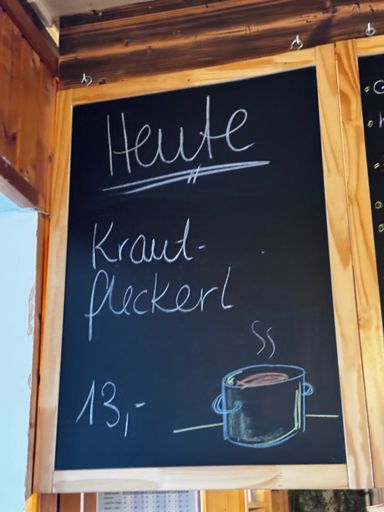 Heute
Kraut-
pleckerl
13,-